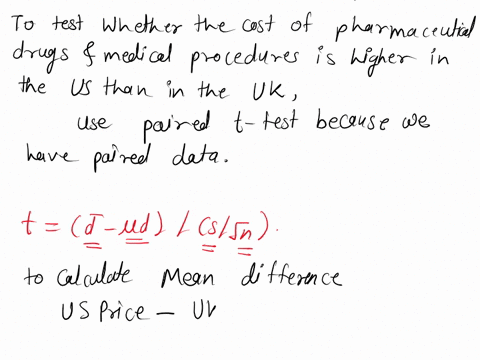 To test whether the cost of pharmaceutial
drugs & medical procedures is higher in
the US than in the UK,
use paired t-test because we
have paired data.
t = (d̄ - μd) / (s/√n).
to calculate Mean difference
US Price - UK